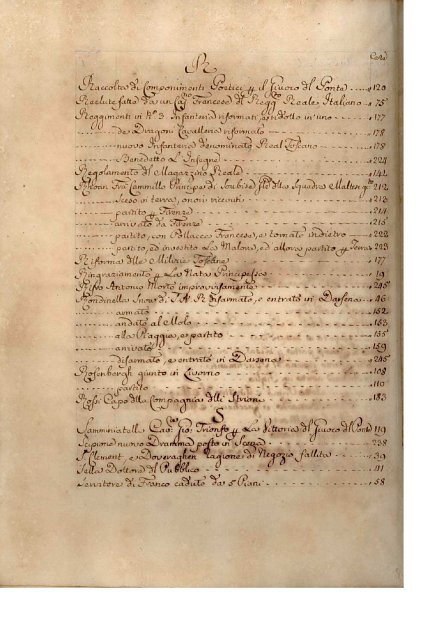 R
Carte
Raccolta di Componimenti Poetici p il Giuoco del Ponte 120
Reclute fatte da un Francese del Regg Reale Italiano 75
Reggimenti vi n.° 3. Infanteria riformati, e ridotto in uno 177
de Dragoni Cavalleria riformato 178
nuovo Infanteria denominato Real Toscano 178
Benedetto l'Insegne 224
Regolamento del Magazzino Reale 141
Fra Cammillo Principe di Soubise delle Squadra Maltese 212
sceso in terra, onori ricevuti 213
partito p Firenze 214
arrivato da Firenze 216
partito, con Pollacca Francese, e tornato indietro 222
partito, ed investito La Malora, ed allora partito p 223
Riforma delle Milizie Toscane 177
Ringraziamento p La Nata Principessa 19
Antonio Morto improvvisamente 205
Rondinella di S. M. R. disarmato, e entrato in Darsena 46
armato 152
andato al Molo 153
alla Piaggia, e partito 155
arrivato 159
disarmato, e entrato in Darsena
Rosenbergh giunto in Livorno 108
partito 110
Rossi Capo della Compagnia delli Istrioni 183
S
Samminiatelli Trionfo p La Vittoria del Giuoco del Ponte 119
Scipione nuovo Dramma posto in Scena 238
S. Clement, e ragione di Negozio fallita 39
Sella Dottore del Pubblico 91
Servitore di Franco caduto da 5 Piani 58